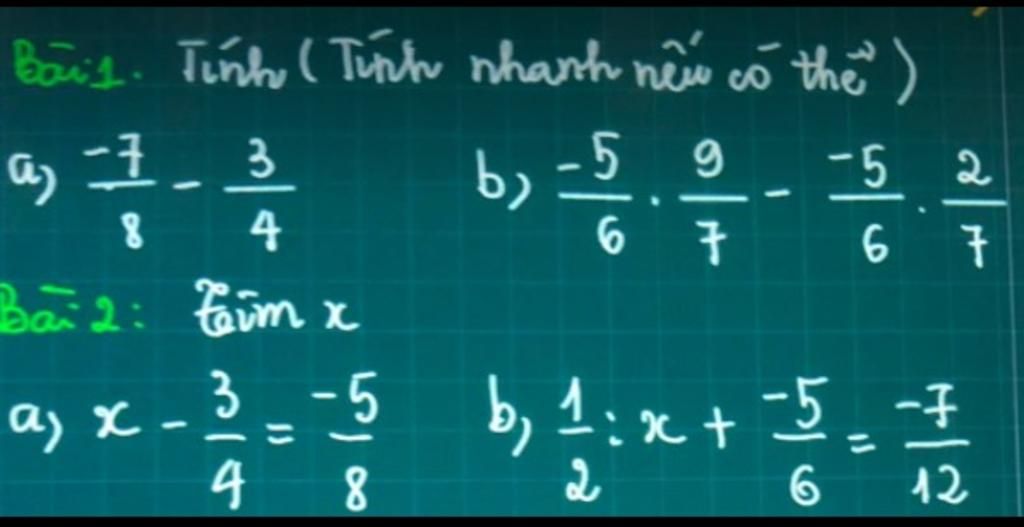 Bài 1. Tính (Tính nhanh nếu có thể)
a) -7/8 - 3/4 b) -5/6 . 9/7 - -5/6 . 2/7
Bài 2: Tìm x
a) x - 3/4 = -5/8 b) 1/2 : x + -5/6 = -7/12